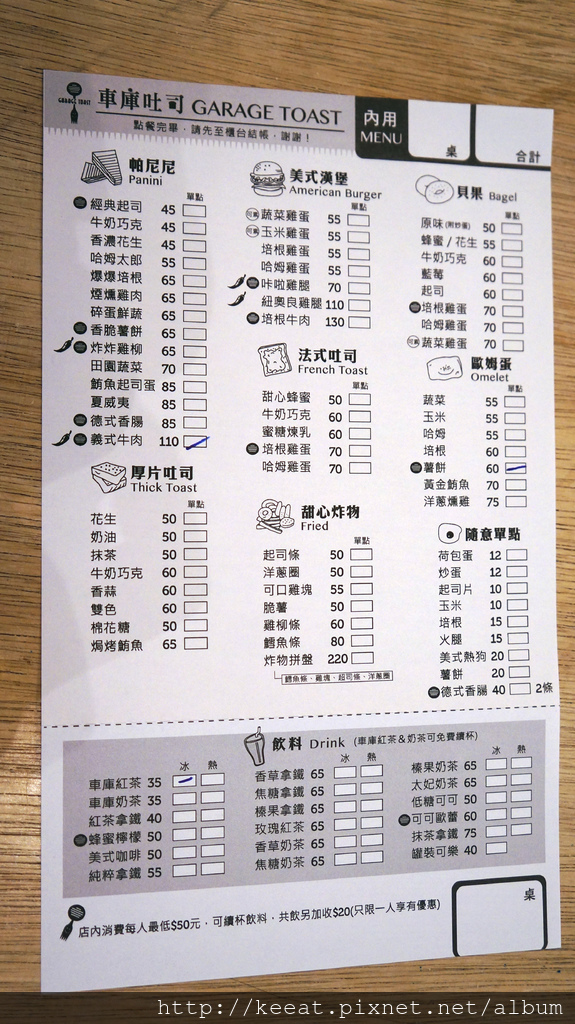 GARAGE TOAST
車庫吐司 GARAGE TOAST
點餐完畢，請先至櫃台結帳，謝謝！
內用
MENU
桌
合計
帕尼尼
Panini
單點
經典起司 45
牛奶巧克 45
香濃花生 45
哈姆太郎 55
爆爆培根 65
煙燻雞肉 65
碎蛋鮮蔬 65
香脆薯餅 65
炸炸雞柳 65
田園蔬菜 70
鮪魚起司蛋 85
夏威夷 85
德式香腸 85
義式牛肉 110
厚片吐司
Thick Toast
單點
花生 50
奶油 50
抹茶 50
牛奶巧克 60
香蒜 60
雙色 60
棉花糖 50
焗烤鮪魚 65
美式漢堡
American Burger
單點
蔬菜雞蛋 55
玉米雞蛋 55
培根雞蛋 55
哈姆雞蛋 55
咔啦雞腿 70
紐奧良雞腿 110
培根牛肉 130
法式吐司
French Toast
單點
甜心蜂蜜 50
牛奶巧克 60
蜜糖煉乳 60
培根雞蛋 70
哈姆雞蛋 70
甜心炸物
Fried
單點
起司條 50
洋蔥圈 50
可口雞塊 55
脆薯 50
雞柳條 60
鱈魚條 80
炸物拼盤 220
鱈魚條、雞塊、起司條、洋蔥圈
貝果 Bagel
單點
原味(附炒蛋) 50
蜂蜜/花生 55
牛奶巧克 60
藍莓 60
起司 60
培根雞蛋 70
哈姆雞蛋 70
蔬菜雞蛋 70
歐姆蛋
Omelet
單點
蔬菜 55
玉米 55
哈姆 55
培根 60
薯餅 60
黃金鮪魚 70
洋蔥燻雞 75
隨意單點
單點
荷包蛋 12
炒蛋 12
起司片 10
玉米 10
培根 15
火腿 15
美式熱狗 20
薯餅 20
德式香腸 40 2條
飲料 Drink (車庫紅茶＆奶茶可免費續杯)
冰 熱
車庫紅茶 35
車庫奶茶 35
紅茶拿鐵 40
蜂蜜檸檬 50
美式咖啡 50
純粹拿鐵 55
冰 熱
香草拿鐵 65
焦糖拿鐵 65
榛果拿鐵 65
玫瑰紅茶 65
香草奶茶 65
焦糖奶茶 65
冰 熱
榛果奶茶 65
太妃奶茶 65
低糖可可 50
可可歐蕾 60
抹茶拿鐵 75
罐裝可樂 40
店內消費每人最低$50元，可續杯飲料，共飲另加收$20(只限一人享有優惠)
桌
http://keeat.pixnet.net/album